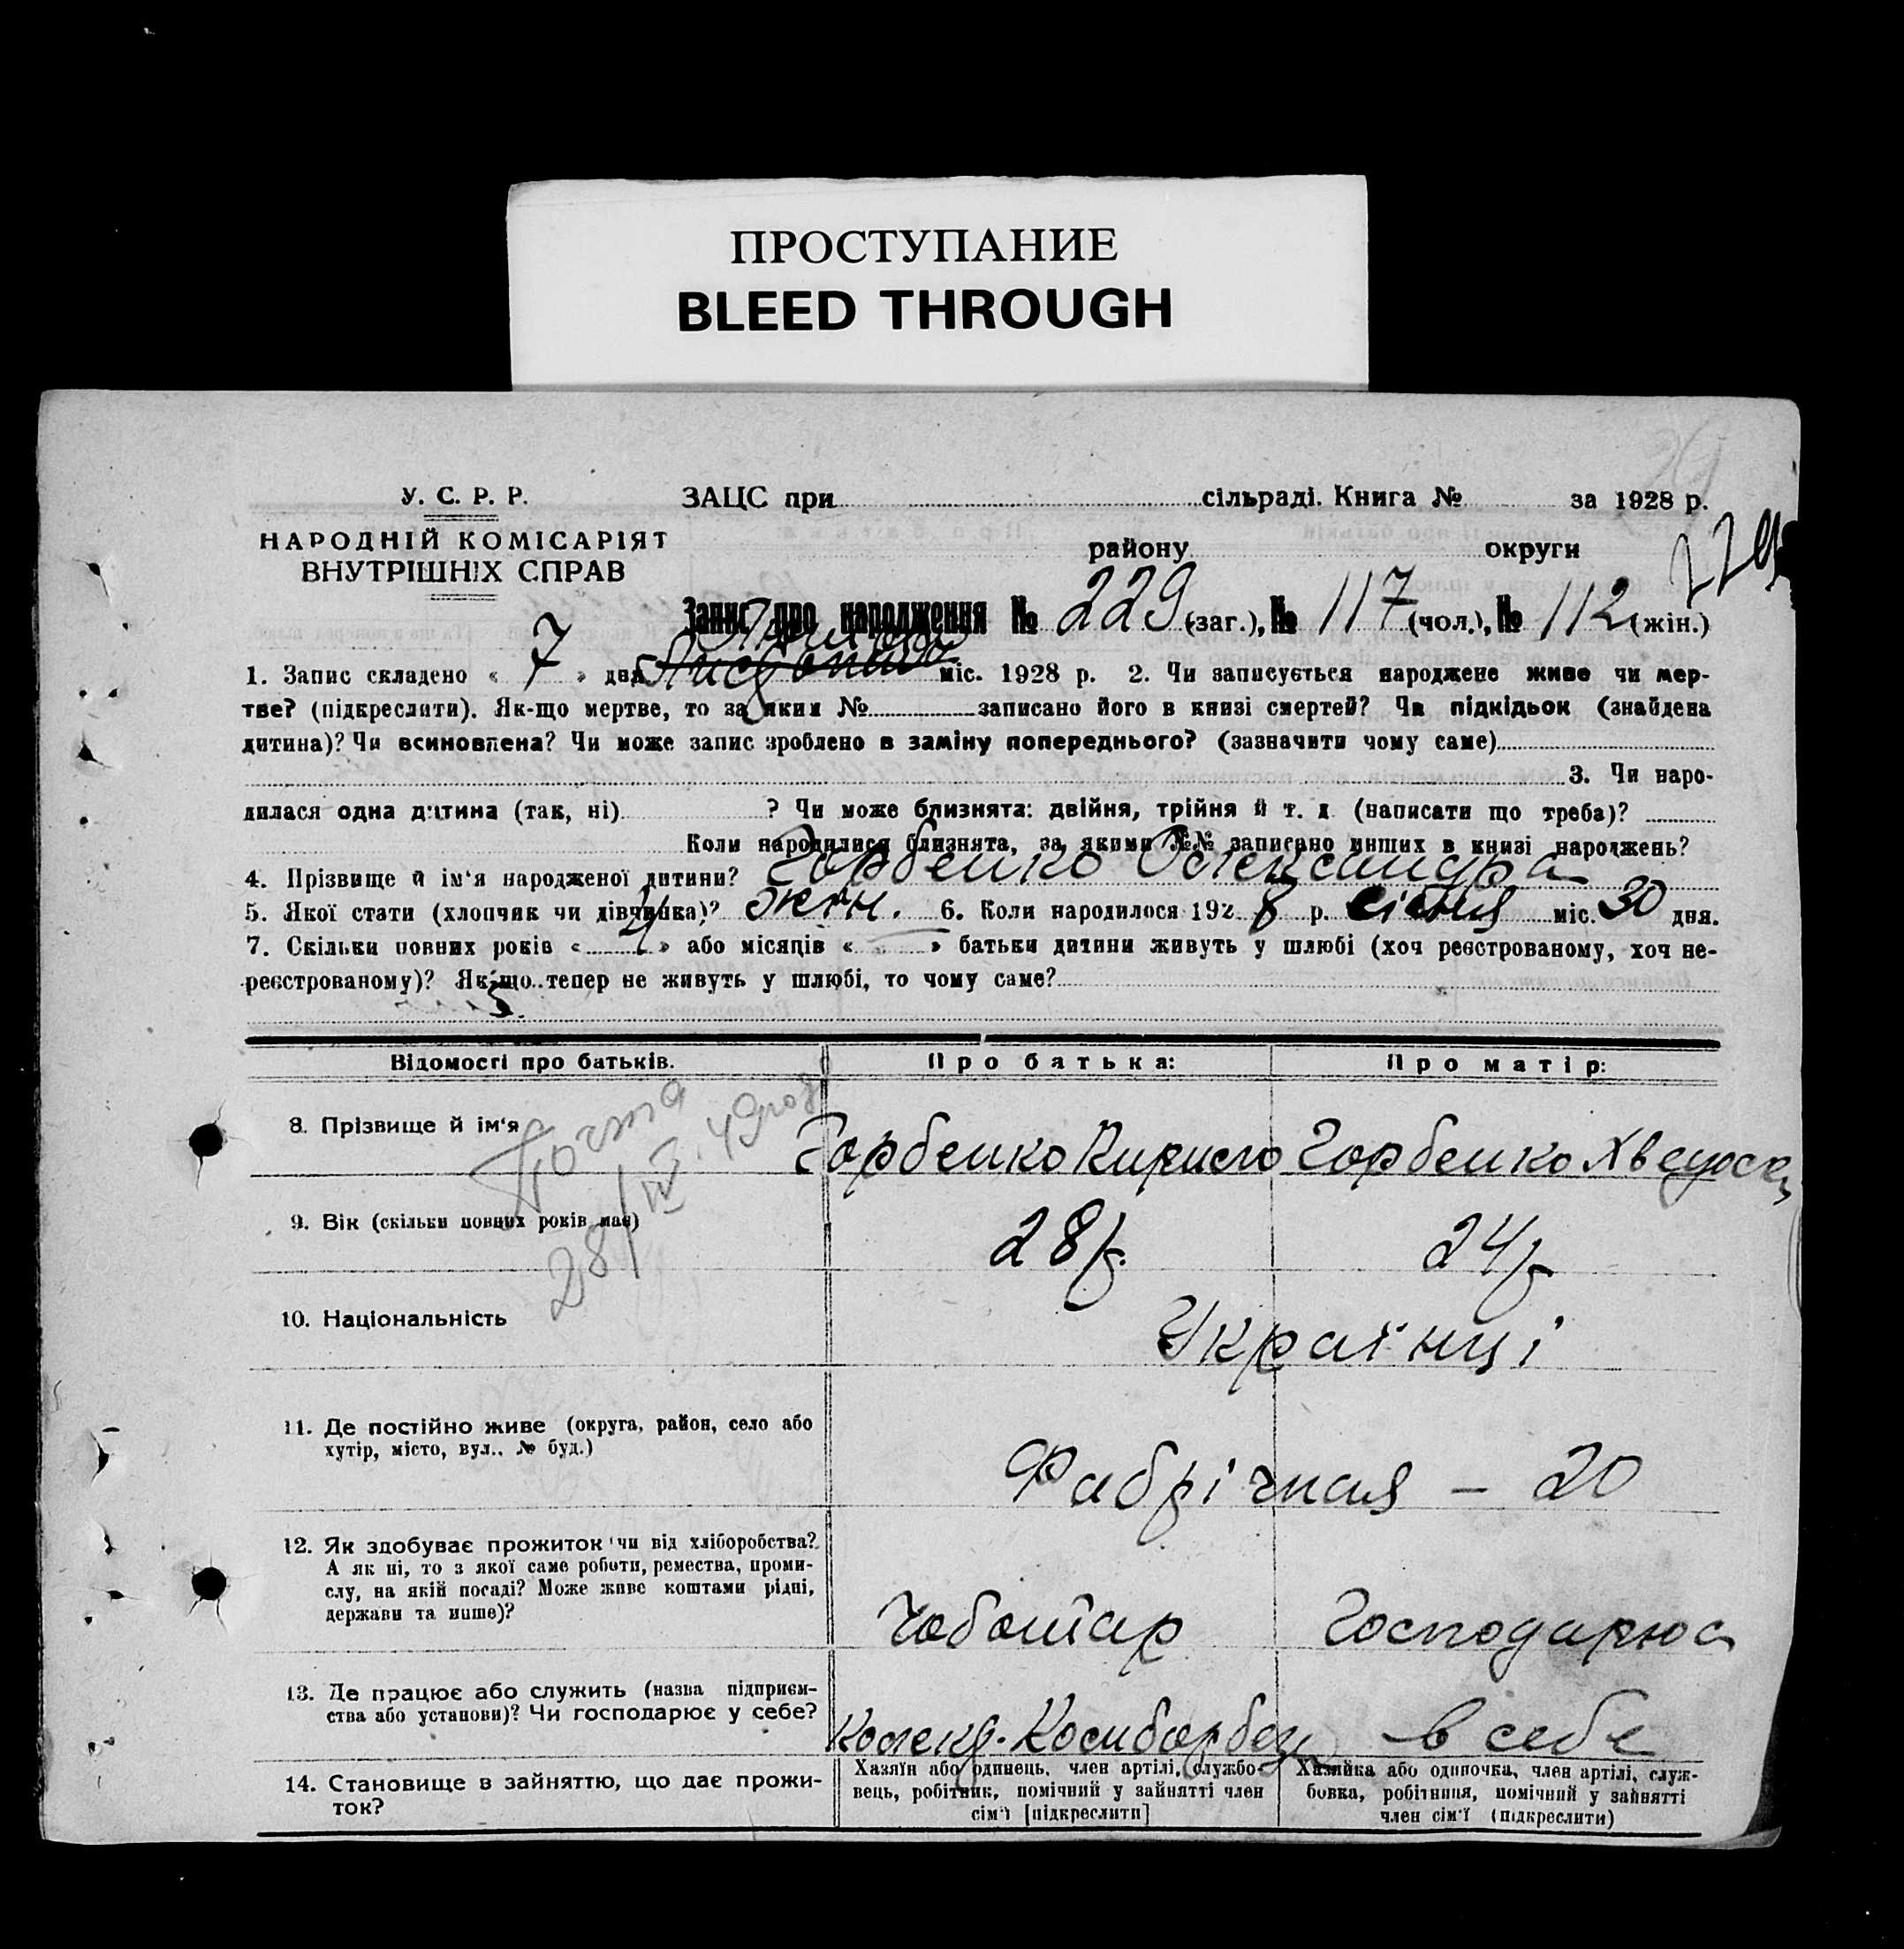 ПРОСТУПАНИЕ
BLEED THROUGH
У. С. Р. Р.
НАРОДНІЙ КОМІСАРІЯТ
ВНУТРІШНІХ СПРАВ
ЗАЦС при сільраді. Книга № за 1928 р.
району округи
Запис про народження № 229 (заг.), № 117 (чол.), № 112 (жін.)
1. Запис складено « 7 » дня міс. 1928 р. 2. Чи записується народжене живе чи мер-
тве? (підкреслити). Як-що мертве, то за яким № записано його в книзі смертей? Чи підкідьок (знайдена
дитина)? Чи всиновлена? Чи може запис зроблено в заміну попереднього? (зазначити чому саме)
3. Чи наро-
дилася одна дитина (так, ні) ? Чи може близнята: двійня, трійня й т. д. (написати що треба)?
Коли народилися близнята, за якими №№ записано инших в книзі народжень?
4. Прізвище й ім‘я народженої дитини? Горбенко Олександра
5. Якої стати (хлопчик чи дівчинка)? жін. 6. Коли народилося 1928 р. січня міс. 30 дня.
7. Скільки повних років « 4 » або місяців « » батьки дитини живуть у шлюбі (хоч реєстрованому, хоч не-
реєстрованому)? Як-що тепер не живуть у шлюбі, то чому саме?
Відомості про батьків. Про батька: Про матір:
8. Прізвище й ім‘я Горбенко Кирило Горбенко Хведося
9. Вік (скільки повних років має) 28 р. 24 р
10. Національність Українці
11. Де постійно живе (округа, район, село або
хутір, місто, вул., № буд.)
Фабрічная – 20
12. Як здобуває прожиток чи від хліборобства?
А як ні, то з якої саме роботи, ремества, проми-
слу, на якій посаді? Може живе коштами рідні,
держави та инше)?
Чоботар Господарює
13. Де працює або служить (назва підприєм-
ства або установи)? Чи господарює у себе?
в себе
14. Становище в зайняттю, що дає прожи-
ток?
Хазяїн або одинець, член артілі, службо-
вець, робітник, помічний у зайнятті член
сім'ї [підкреслити]
Хазяйка або одиночка, член артілі, служ-
бовка, робітниця, помічний у зайнятті
член сім'ї (підкреслити)